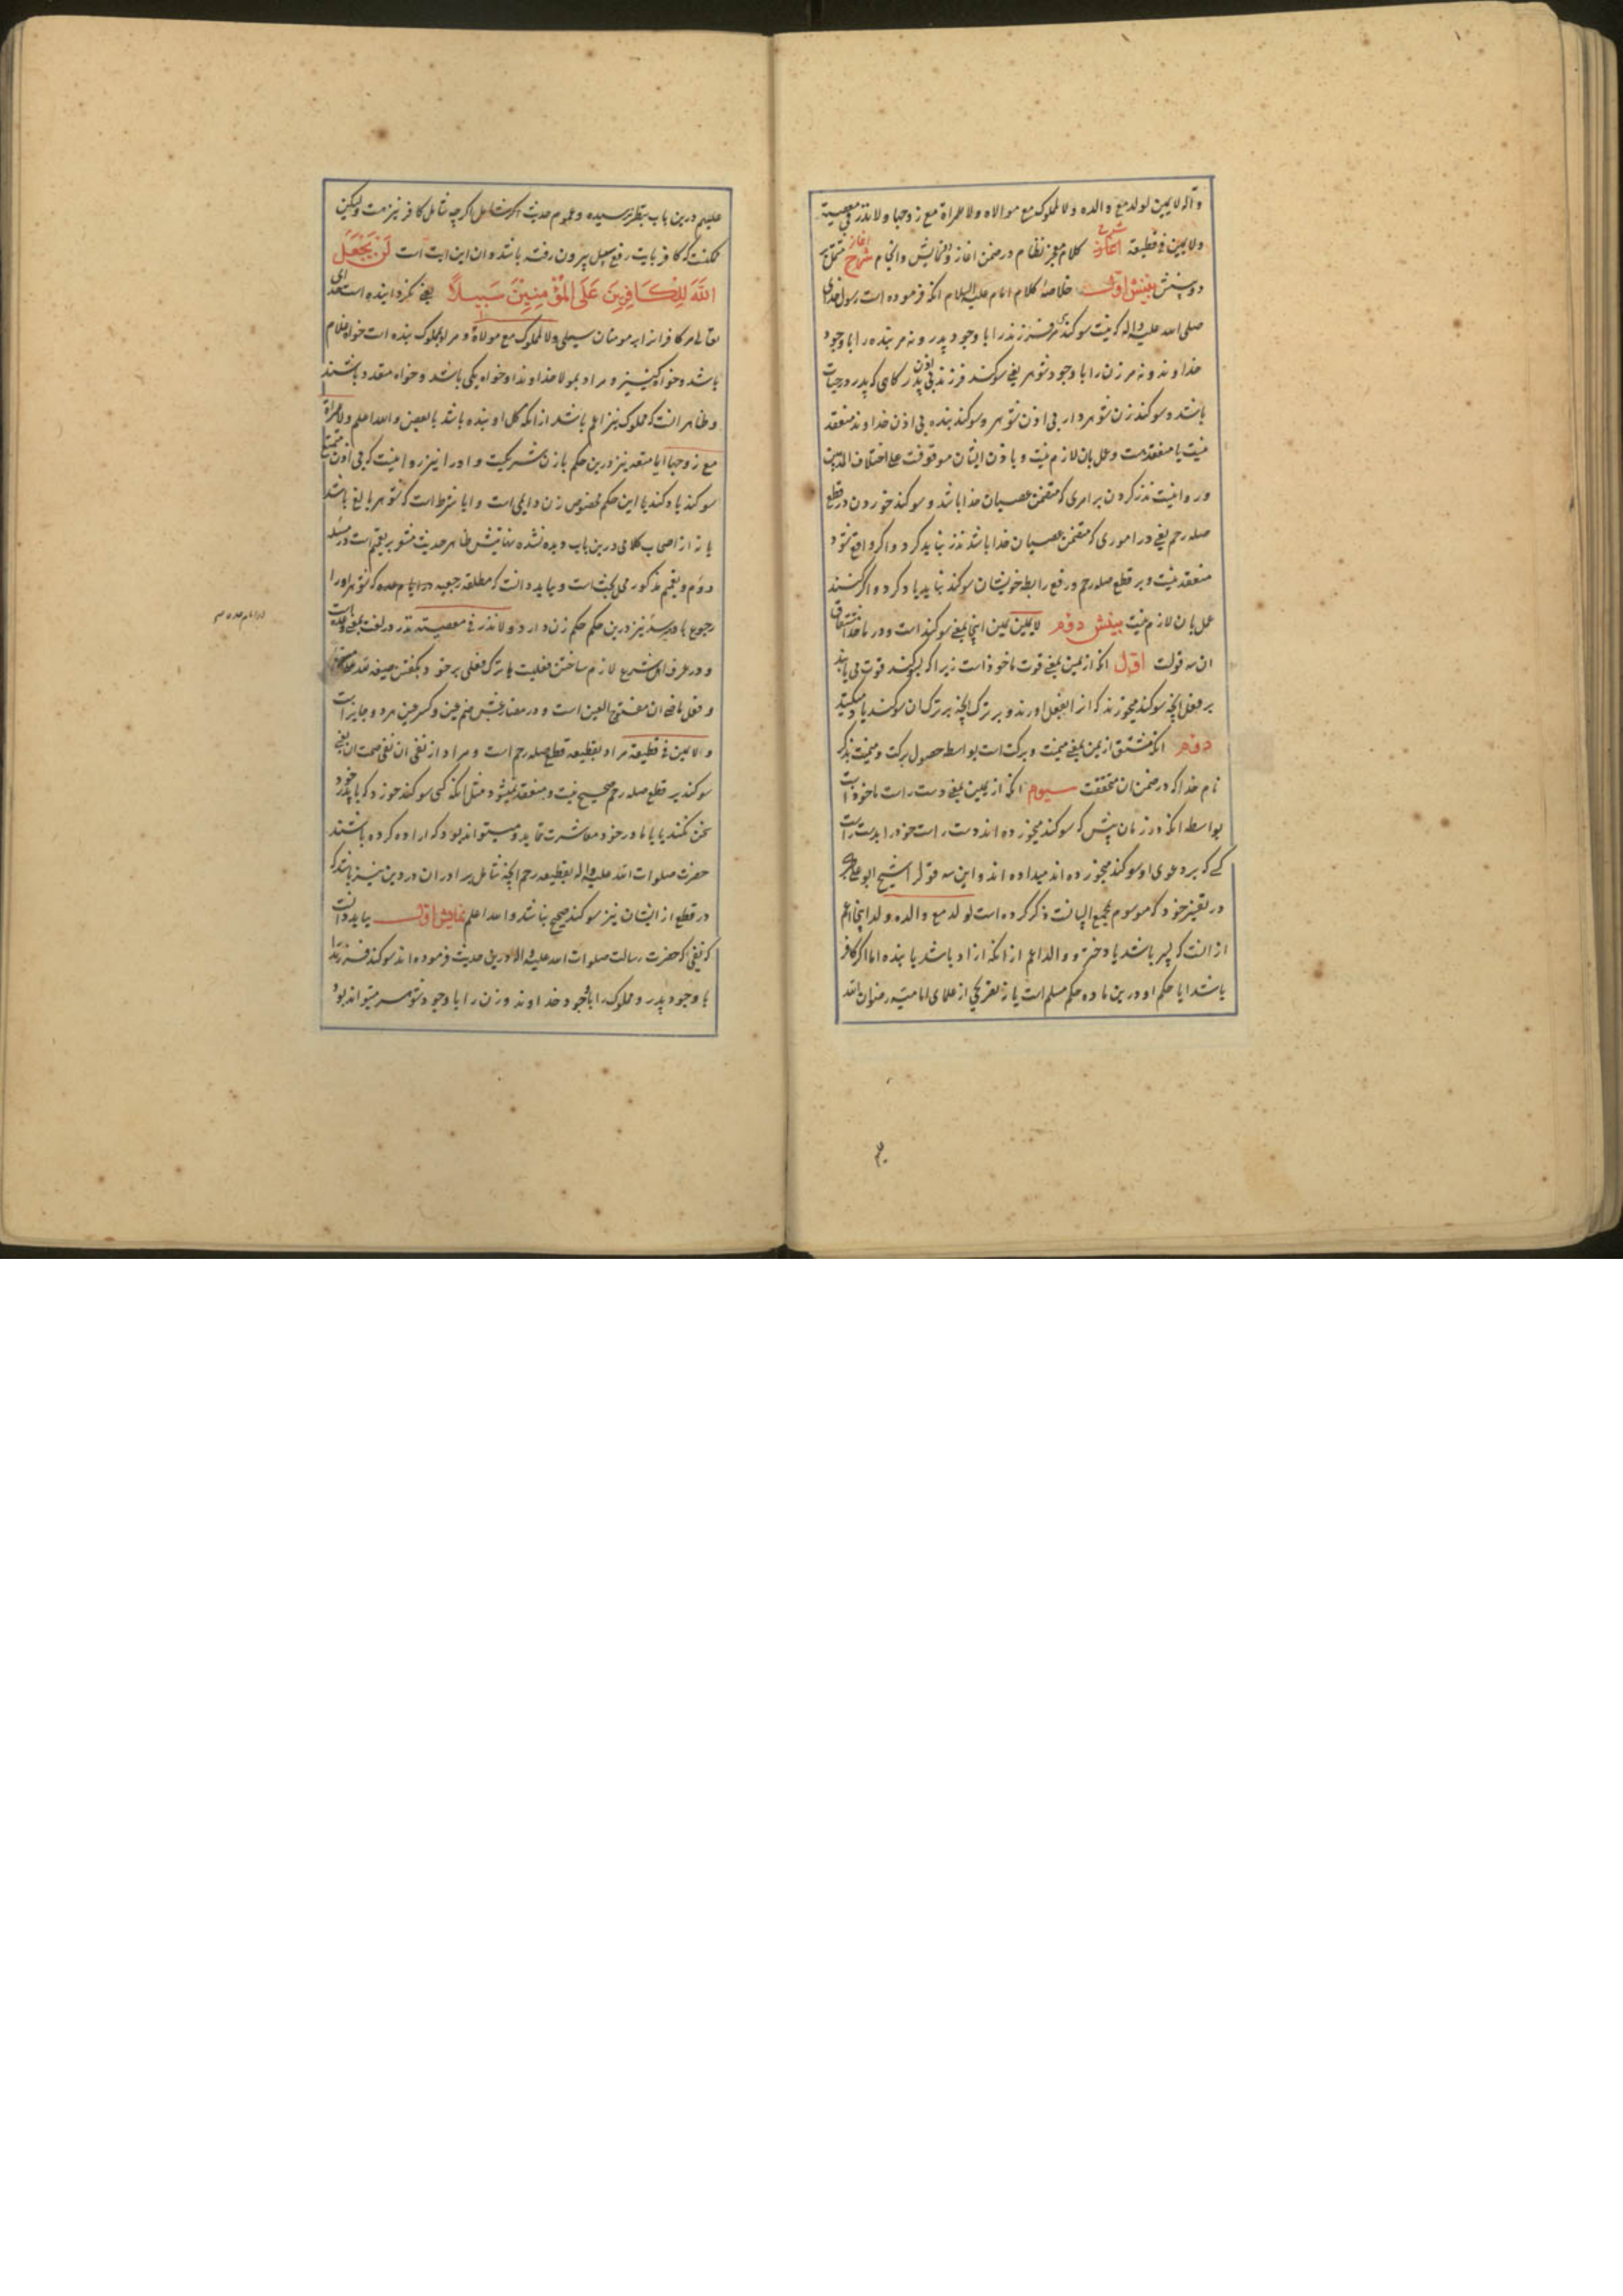 واله لا یمین لولد مع والده ولا لمملوک مع مولاه ولا لمراة مع زوجها ولا نذر فی معصیة
ولا یمین فی قطیعة اغاز شرح کلام معجز نظام در ضمن اغاز و نمایش و انجام
دو بینش بینش اول خلاصهٔ کلام امام علیه السلام انکه فرموده است رسول خدای
صلی الله علیه واله که نیست سوکندی مر فرزند را با وجود پدر و نه مر بنده را با وجود
خداوند و نه مر زن را با وجود شوهر یعنی سوکند فرزند بی اذن پدر کاهی که پدر در حیات
باشد و سوکند زن شوهردار بی اذن شوهر و سوکند بنده بی اذن خداوند منعقد
نیست یا منعقد هست و عمل بان لازم نیست و باذن ایشان موقوفست علی اختلاف المذهبین
و روا نیست نذر کردن بر امری که متضمن عصیان خدا باشد و سوکند خوردن در قطع
صله رحم یعنی در اموری که متضمن عصیان خدا باشد نذر نباید کرد و اکر واقع شود
منعقد نیست و بر قطع صله رحم و رفع رابطه خویشان سوکند نباید یاد کرد و اکر کنند
عمل بان لازم نیست بینش دوم لا یمین یمین اینجا بمعنی سوکند است و در ماخذ اشتقاق
ان سه قولست اول انکه از یمین بمعنی قوت ماخوذ است زیرا که بسوکند قوت می یابد
بر فعل انچه سوکند میخورند که از ا بفعل اورند و بر ترک انچه بر ترک ان سوکند یاد میکنند
دوم انکه مشتق از یمن بمعنی میمنت و برکت است بواسطه حصول برکت و میمنت بذکر
نام خدا که در ضمن ان متحققست سیوم انکه از یمین بمعنی دست راست ماخوذ است
بواسطه انکه در زمان پیش که سوکند میخورده اند دست راست خود را بدست راست
کسی که بر دعوی او سوکند میخورده اند میداده اند و این سه قول را شیخ ابو علی
در تفسیر خود که موسوم بمجمع البیانست ذکر کرده است لولد مع والده ولد اینجا اعم
از انست که پسر باشد یا دختر و والد اعم از انکه ازاد باشد یا بنده اما اکر کافر
باشد ایا حکم او درین ماده حکم مسلم است یا نه تصریحی از علمای امامیه رضوان الله
علیهم درین باب بنظر نرسیده و عموم حدیث اکرچه شامل کافر نیز هست ولیکن
ممکنست که کافر بایت رفع سبیل بیرون رفته باشد و ان این ایت است لَنْ یَجْعَلَ
اللّٰهُ لِلْکَافِرِینَ عَلَی الْمُؤْمِنِینَ سَبِیلًا یعنی نکردانیده است خدای
تعالی مر کافرانرا بر مومنان سبیلی ولا لمملوک مع مولاه و مراد بمملوک بنده است خواه غلام
باشد و خواه کنیز و مراد بمولا خداوند او خواه یکی باشد و خواه متعدد باشند
و ظاهر انست که مملوک نیز اعم باشد از انکه کل او بنده باشد یا بعض والله اعلم ولا لمراة
مع زوجها ایا متعه نیز درین حکم با زن شریکست و او را نیز روا نیست که بی اذن
سوکند یاد کند یا این حکم مخصوص زن دایمی است و ایا شرط است که شوهر بالغ باشد
یا نه از اصحاب کلامی درین باب دیده نشده نهایتش ظاهر حدیث مشعر بتعمیم است و در مسئله
دوم و بتعمیم مذکور می بحث است و بباید دانست که مطلقه رجعیه در ایام عده که شوهر او را
رجوع با و میرسد نیز درین حکم حکم زن دارد ولا نذر فی معصیته نذر در لغت بمعنی وعده است
و در عرف اهل شرع لازم ساختن فعلیست یا ترک فعلی بر خود بکفتن صیغه
و فعل ماضی ان مفتوح العین است و در مضارعش ضم عین و کسر عین هر دو جایز است
ولا یمین فی قطیعة مراد بقطیعه قطع صله رحم است و مراد از نفی ان نفی صحت ان یعنی
سوکند بر قطع صله رحم صحیح نیست و منعقد نمیشود مثل انکه کسی سوکند خورد که با پدر خود
سخن نکند یا با مادر خود معاشرت ننماید و میتواند بود که اراده کرده باشند
حضرت صلوات الله علیه واله بقطیعه رحم انچه شامل برادران در دین نیز باشد که
در قطع از ایشان نیز سوکند صحیح نباشد والله اعلم نمایش اول بباید دانست
که نفی که حضرت رسالت صلوات الله علیه واله درین حدیث فرموده اند سوکند فرزند را
با وجود پدر و مملوک را با وجود خداوند و زن را با وجود شوهر میتواند بود
در ایام عده